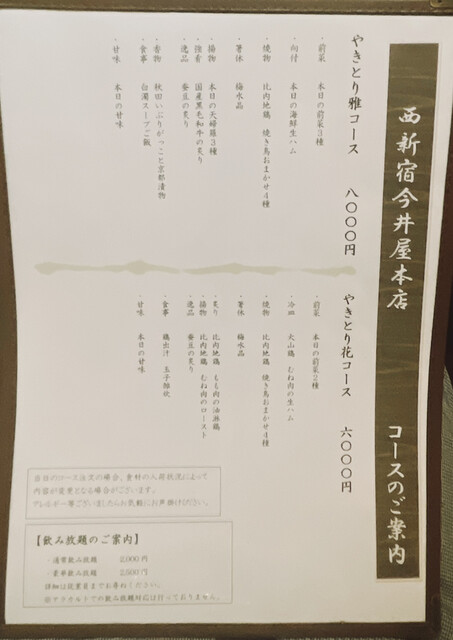 西新宿今井屋本店　コースのご案内
やきとり雅コース　八〇〇〇円
・前菜　本日の前菜３種
・向付　本日の海鮮生ハム
・焼物　比内地鶏　焼き鳥おまかせ４種
・箸休　梅水晶
・揚物　本日の天婦羅３種
・強肴　国産黒毛和牛の炙り
・逸品　蚕豆の炙り
・香物　秋田いぶりがっこと京都漬物
・食事　白濁スープご飯
・甘味　本日の甘味
やきとり花コース　六〇〇〇円
・前菜　本日の前菜２種
・冷皿　大山鶏　むね肉の生ハム
・焼物　比内地鶏　焼き鳥おまかせ４種
・箸休　梅水晶
・炙り　比内地鶏　もも肉の油淋鶏
・揚物　比内地鶏　むね肉のロースト
・逸品　蚕豆の炙り
・食事　鶏出汁　玉子雑炊
・甘味　本日の甘味
当日のコース注文の場合、食材の入荷状況によって
内容が変更となる場合がございます。
アレルギー等ございましたらお気軽にお声掛けください。
【飲み放題のご案内】
・通常飲み放題　2,000円
・豪華飲み放題　2,500円
詳細は従業員までお尋ねください。
※アラカルトでの飲み放題対応は行っておりません。